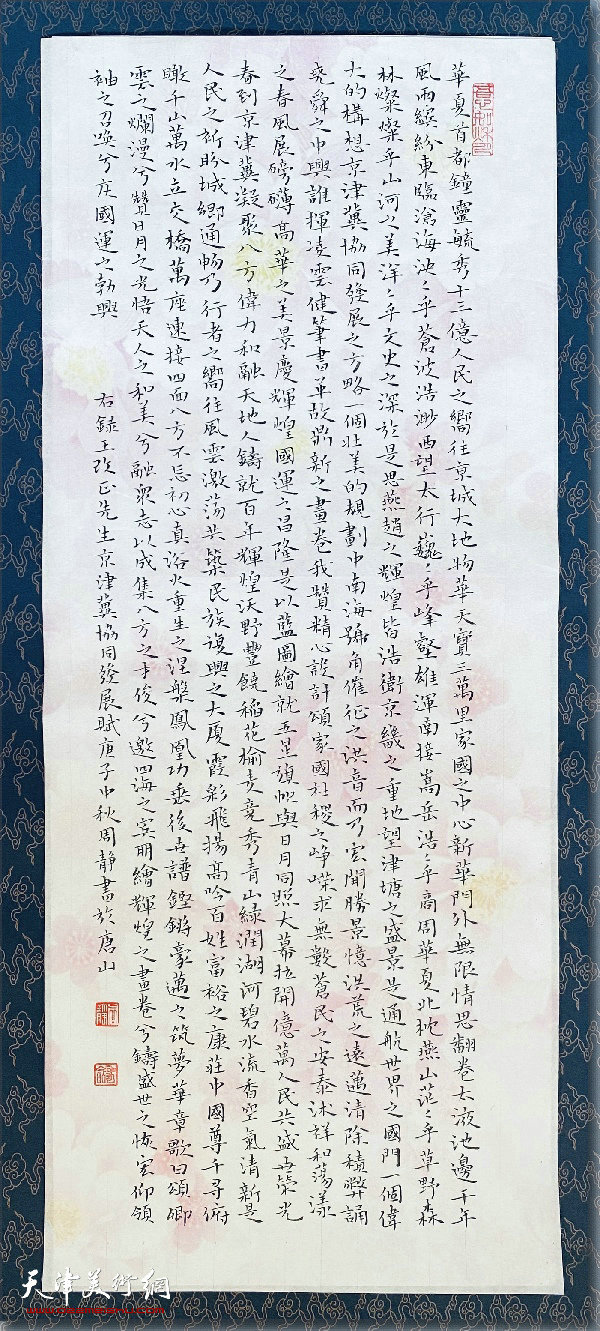 華夏首都鐘靈毓秀十三億人民之嚮往京城大地物華天寶三萬里家國之中心新華門外無限情思翻卷太液池邊千年
風雨繽紛東臨滄海泱泱乎蒼波浩渺西望太行巍巍乎峰壑雄渾南接嵩岳浩浩乎商周華夏北枕燕山茫茫乎草野森
林燦燦乎山河之美洋洋乎文史之深於是思燕趙之輝煌皆浩衛京畿之重地望津塘之盛景是通航世界之國門一個偉
大的構想京津冀協同發展之方略一個壯美的規劃中南海號角催征之洪音而乃宏開勝景憶洪荒之遠邁清除積弊誦
堯舜之中興誰揮凌雲健筆書革故鼎新之畫卷我贊精心設計頌家國社稷之崢嶸求無數蒼民之安泰沐祥和蕩漾
之春風展磅礴高華之美景慶輝煌國運之昌隆是以藍圖繪就五星旗幟與日月同照大幕拉開億萬人民共盛世榮光
春到京津冀凝聚八方偉力和融天地人鑄就百年輝煌沃野豐饒稻花榆麥競秀青山綠潤湖河碧水流香空氣清新是
人民之祈盼城鄉通暢乃行者之嚮往風雲激蕩共築民族復興之大廈霞彩飛揚高吟百姓富裕之康莊中國尊千尋俯
瞰千山萬水立交橋萬座連接四面八方不忘初心真浴火重生之涅槃鳳凰功垂後世譜鏗鏘豪邁之筑夢華章歌曰頌卿
雲之爛漫兮贊日月之光悟天人之和美兮融眾志以成集八方之才俊兮邀四海之賓朋繪輝煌之畫卷兮鑄盛世之恢宏仰領
袖之召喚兮庆國運之勃興
右錄王改正先生京津冀協同發展賦庚子中秋周靜書於唐山
天津美術網